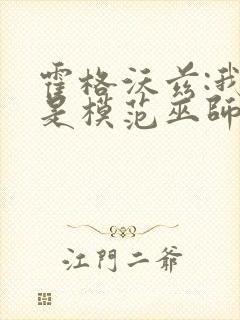 霍格沃兹:我
是模范巫師
江門二爺